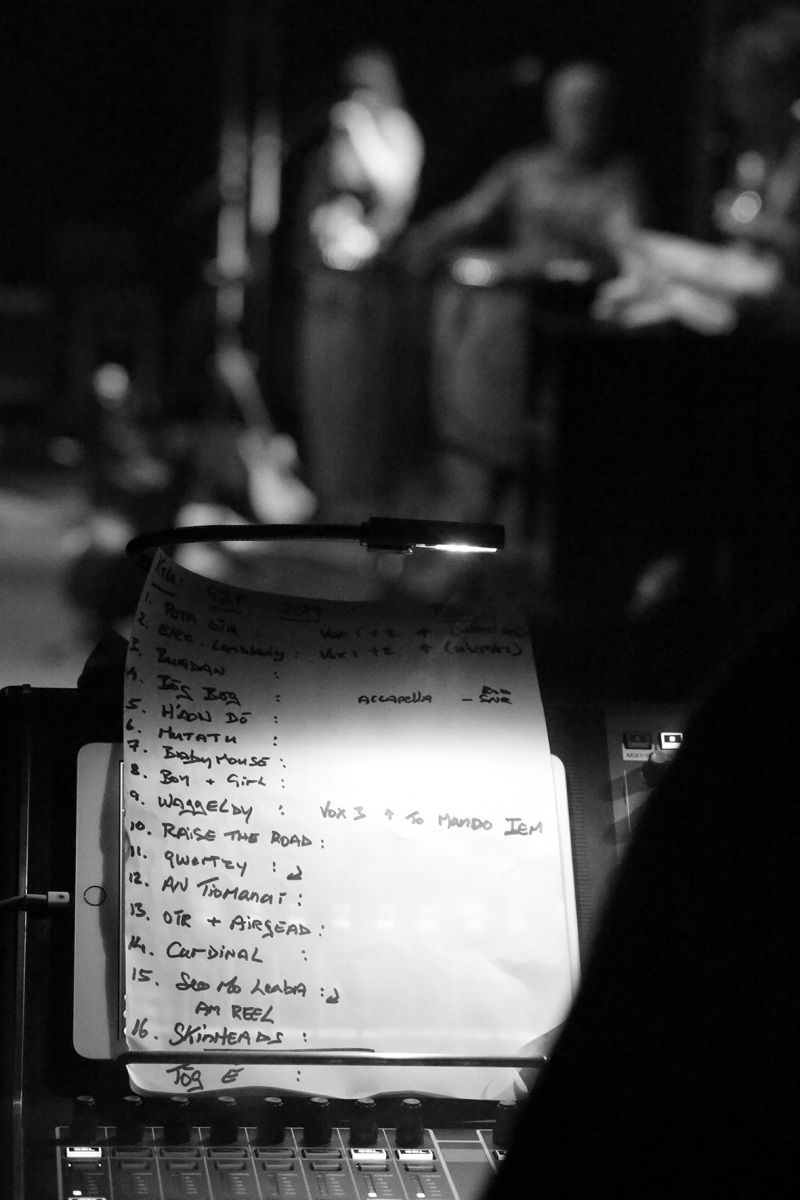 Kila:
1. PUTA OIR :
2. EPEE Landlady : Vox 1 + 2 ↑ (wherries)
3. BUADAN :
4. Bóg Bog : ACCAPELLA –
5. H'AON DÓ :
6. MUTATU :
7. BabyMOUSE :
8. Boy + Girl :
9. WAGGELDY : VOX 3 ↑ To MANDO IEM
10. RAISE THE ROAD :
11. qwertzy :
12. AN Tiomanaí :
13. OÍR + AiRGEAD :
14. CarDINAL :
15. Seo Mo Leaba :
AM REEL
16. SKinHEADS :
Tóg E :
MIX1-